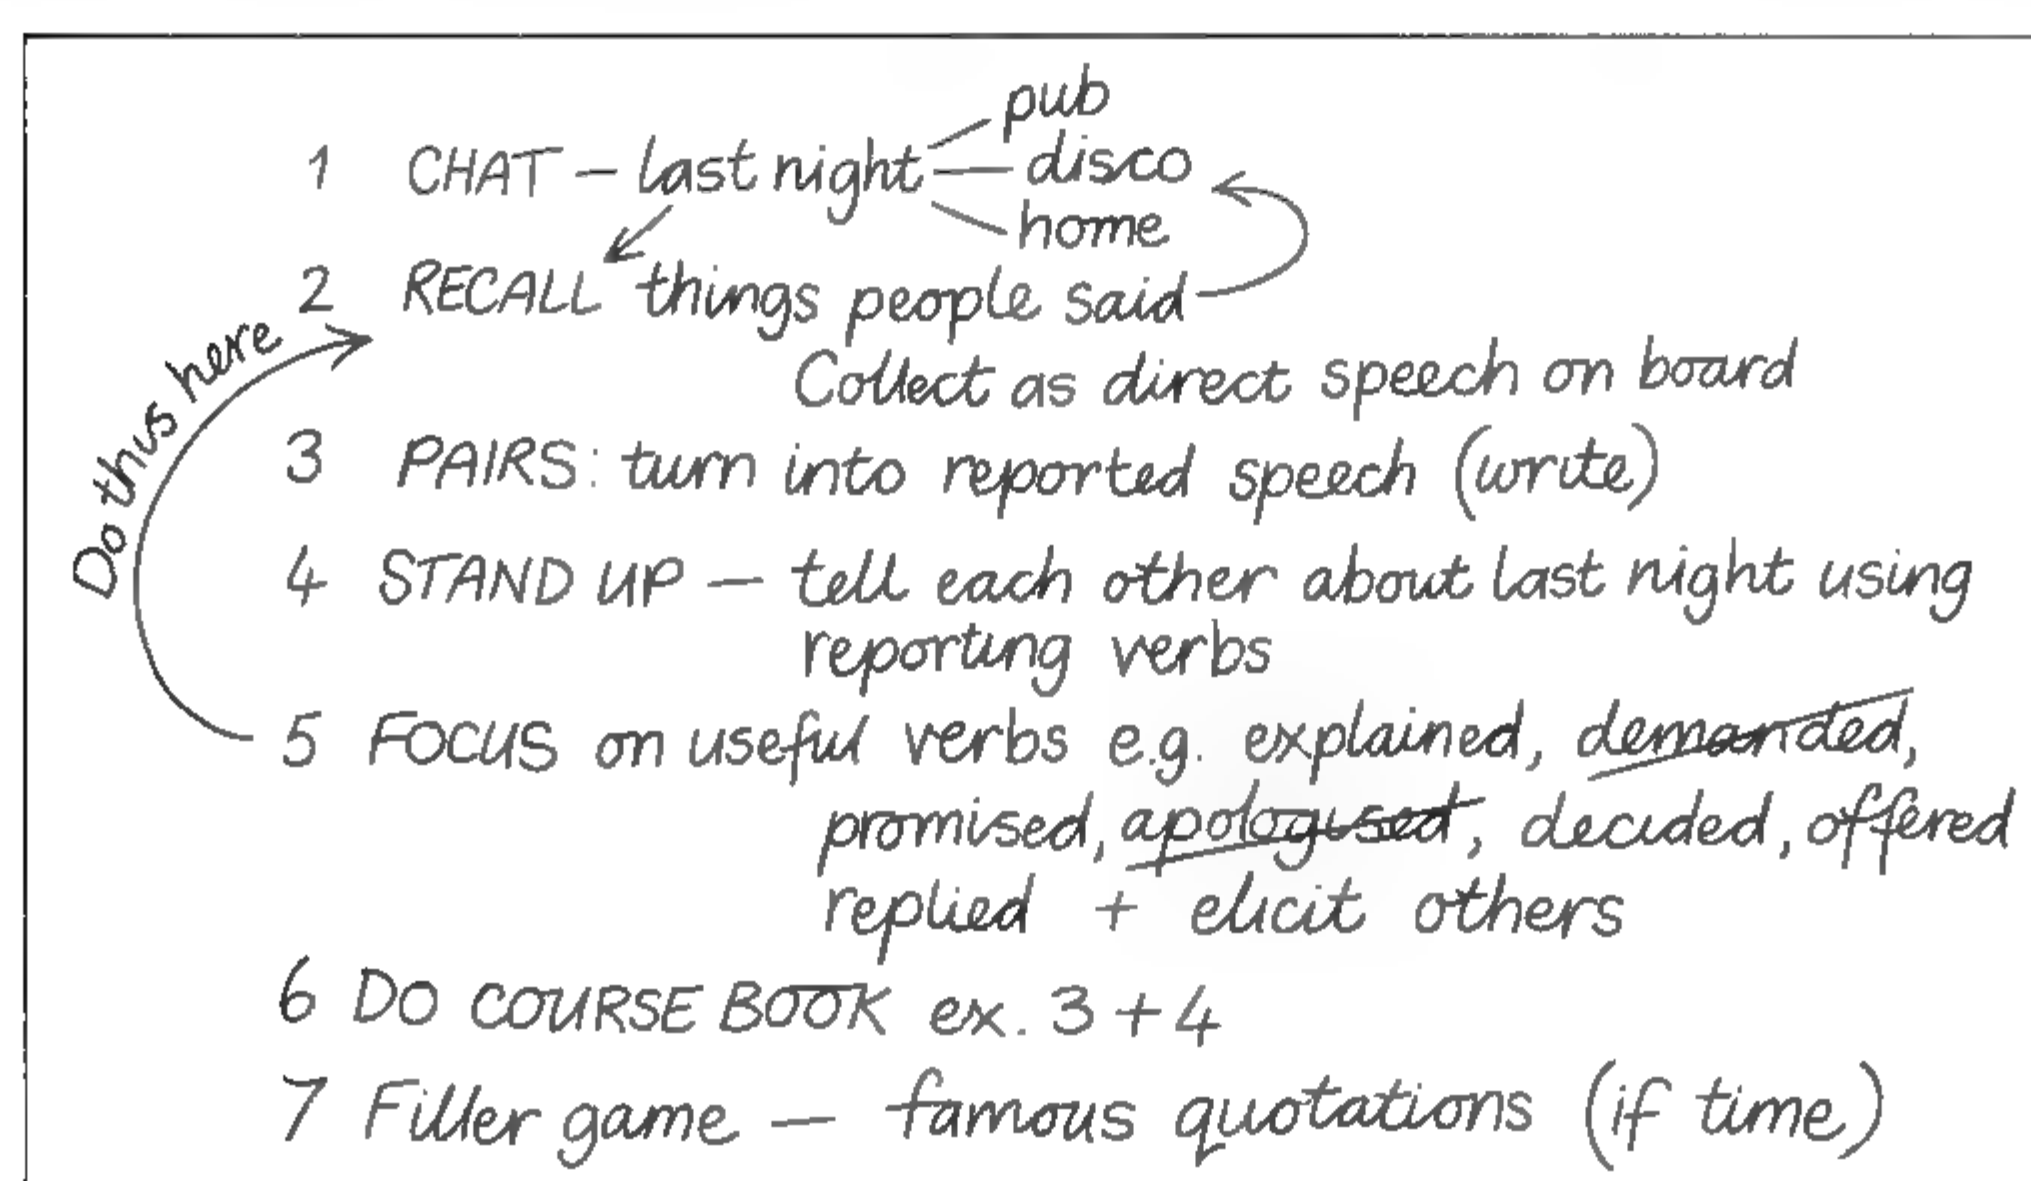 pub
1 CHAT – last night – disco
home
2 RECALL things people said
Do this here
Collect as direct speech on board
3 PAIRS: turn into reported speech (write)
4 STAND UP – tell each other about last night using
reporting verbs
5 FOCUS on useful verbs e.g. explained, demanded,
promised, apologised, decided, offered
replied + elicit others
6 DO COURSE BOOK ex. 3 + 4
7 Filler game – famous quotations (if time)